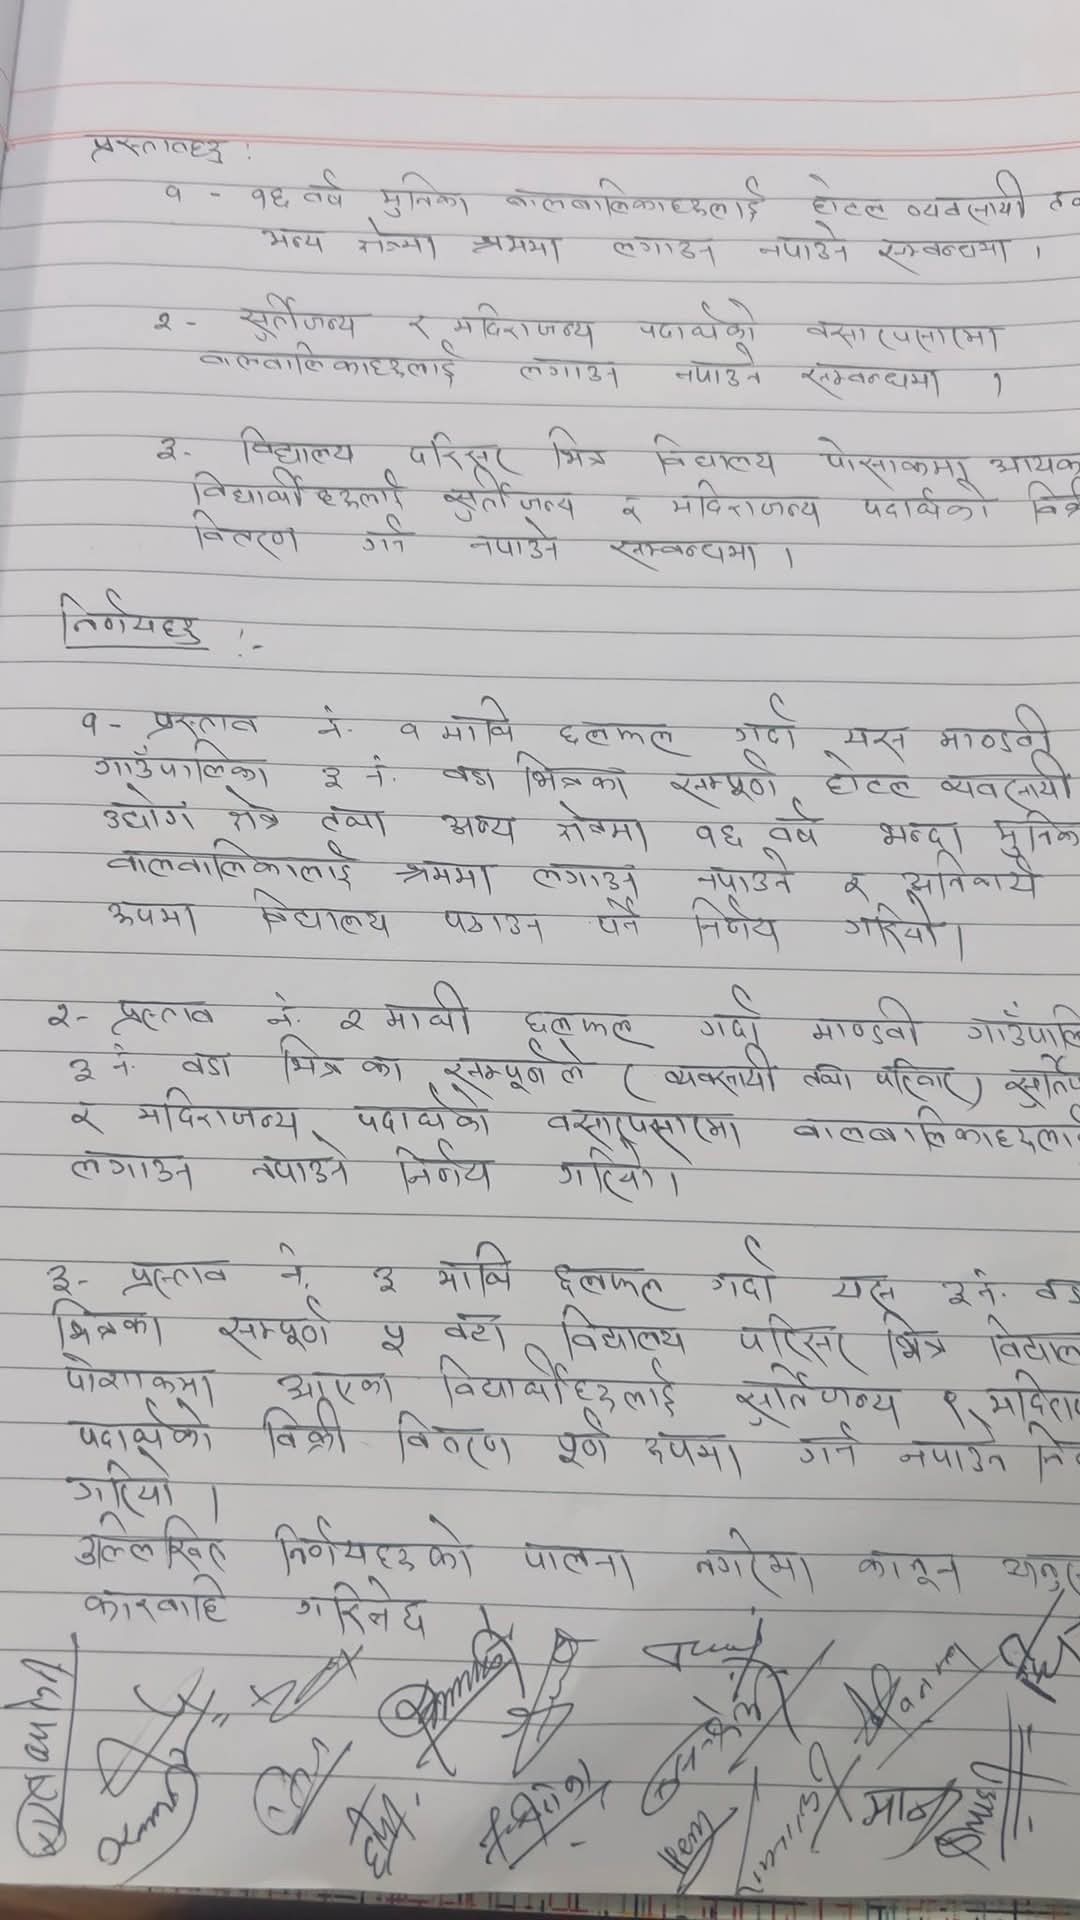 प्रस्तावहरु :
१ - १६ वर्ष मुनिका बालबालिकाहरुलाई होटल व्यवसायी
अन्य क्षेत्रमा श्रममा लगाउन नपाउने सम्बन्धमा ।
२ - सुर्तीजन्य र मदिराजन्य पदार्थको वसारपसारमा
बालबालिकाहरुलाई लगाउन नपाउने सम्बन्धमा ।
३ - विद्यालय परिसर भित्र विद्यालय पोसाकमा आयका
विद्यार्थीहरुलाई सुर्तीजन्य र मदिराजन्य पदार्थको
वितरण गर्न नपाउने सम्बन्धमा ।
निर्णयहरु :-
१ - प्रस्ताव नं. १ माथि छलफल गर्दा यस माण्डवी
गाउँपालिका ३ नं. वडा भित्रका सम्पूर्ण होटल व्यवसायी
उद्योग क्षेत्र तथा अन्य क्षेत्रमा १६ वर्ष भन्दा मुनिका
बालबालिकालाई श्रममा लगाउन नपाउने र अनिवार्य
रुपमा विद्यालय पठाउन पर्ने निर्णय गरियो ।
२ - प्रस्ताव नं. २ माथी छलफल गर्दा माण्डवी
३ नं. वडा भित्रका सम्पूर्णले ( व्यवसायी तथा परिवार )
र मदिराजन्य पदार्थको वसारपसारमा बालबालिकाहरुलाई
लगाउन नपाउने निर्णय गरियो ।
३ - प्रस्ताव नं. ३ माथि छलफल गर्दा यस ३ नं. वडा
भित्रका सम्पूर्ण ५ वटा विद्यालय परिसर भित्र
पोशाकमा आएका विद्यार्थीहरुलाई सुर्तिजन्य र
पदार्थको विक्री वितरण पूर्ण रुपमा गर्न नपाउने
गरियो ।
उल्लिखित निर्णयहरुको पालना नगरेमा कानून
कारवाहि गरिनेछ